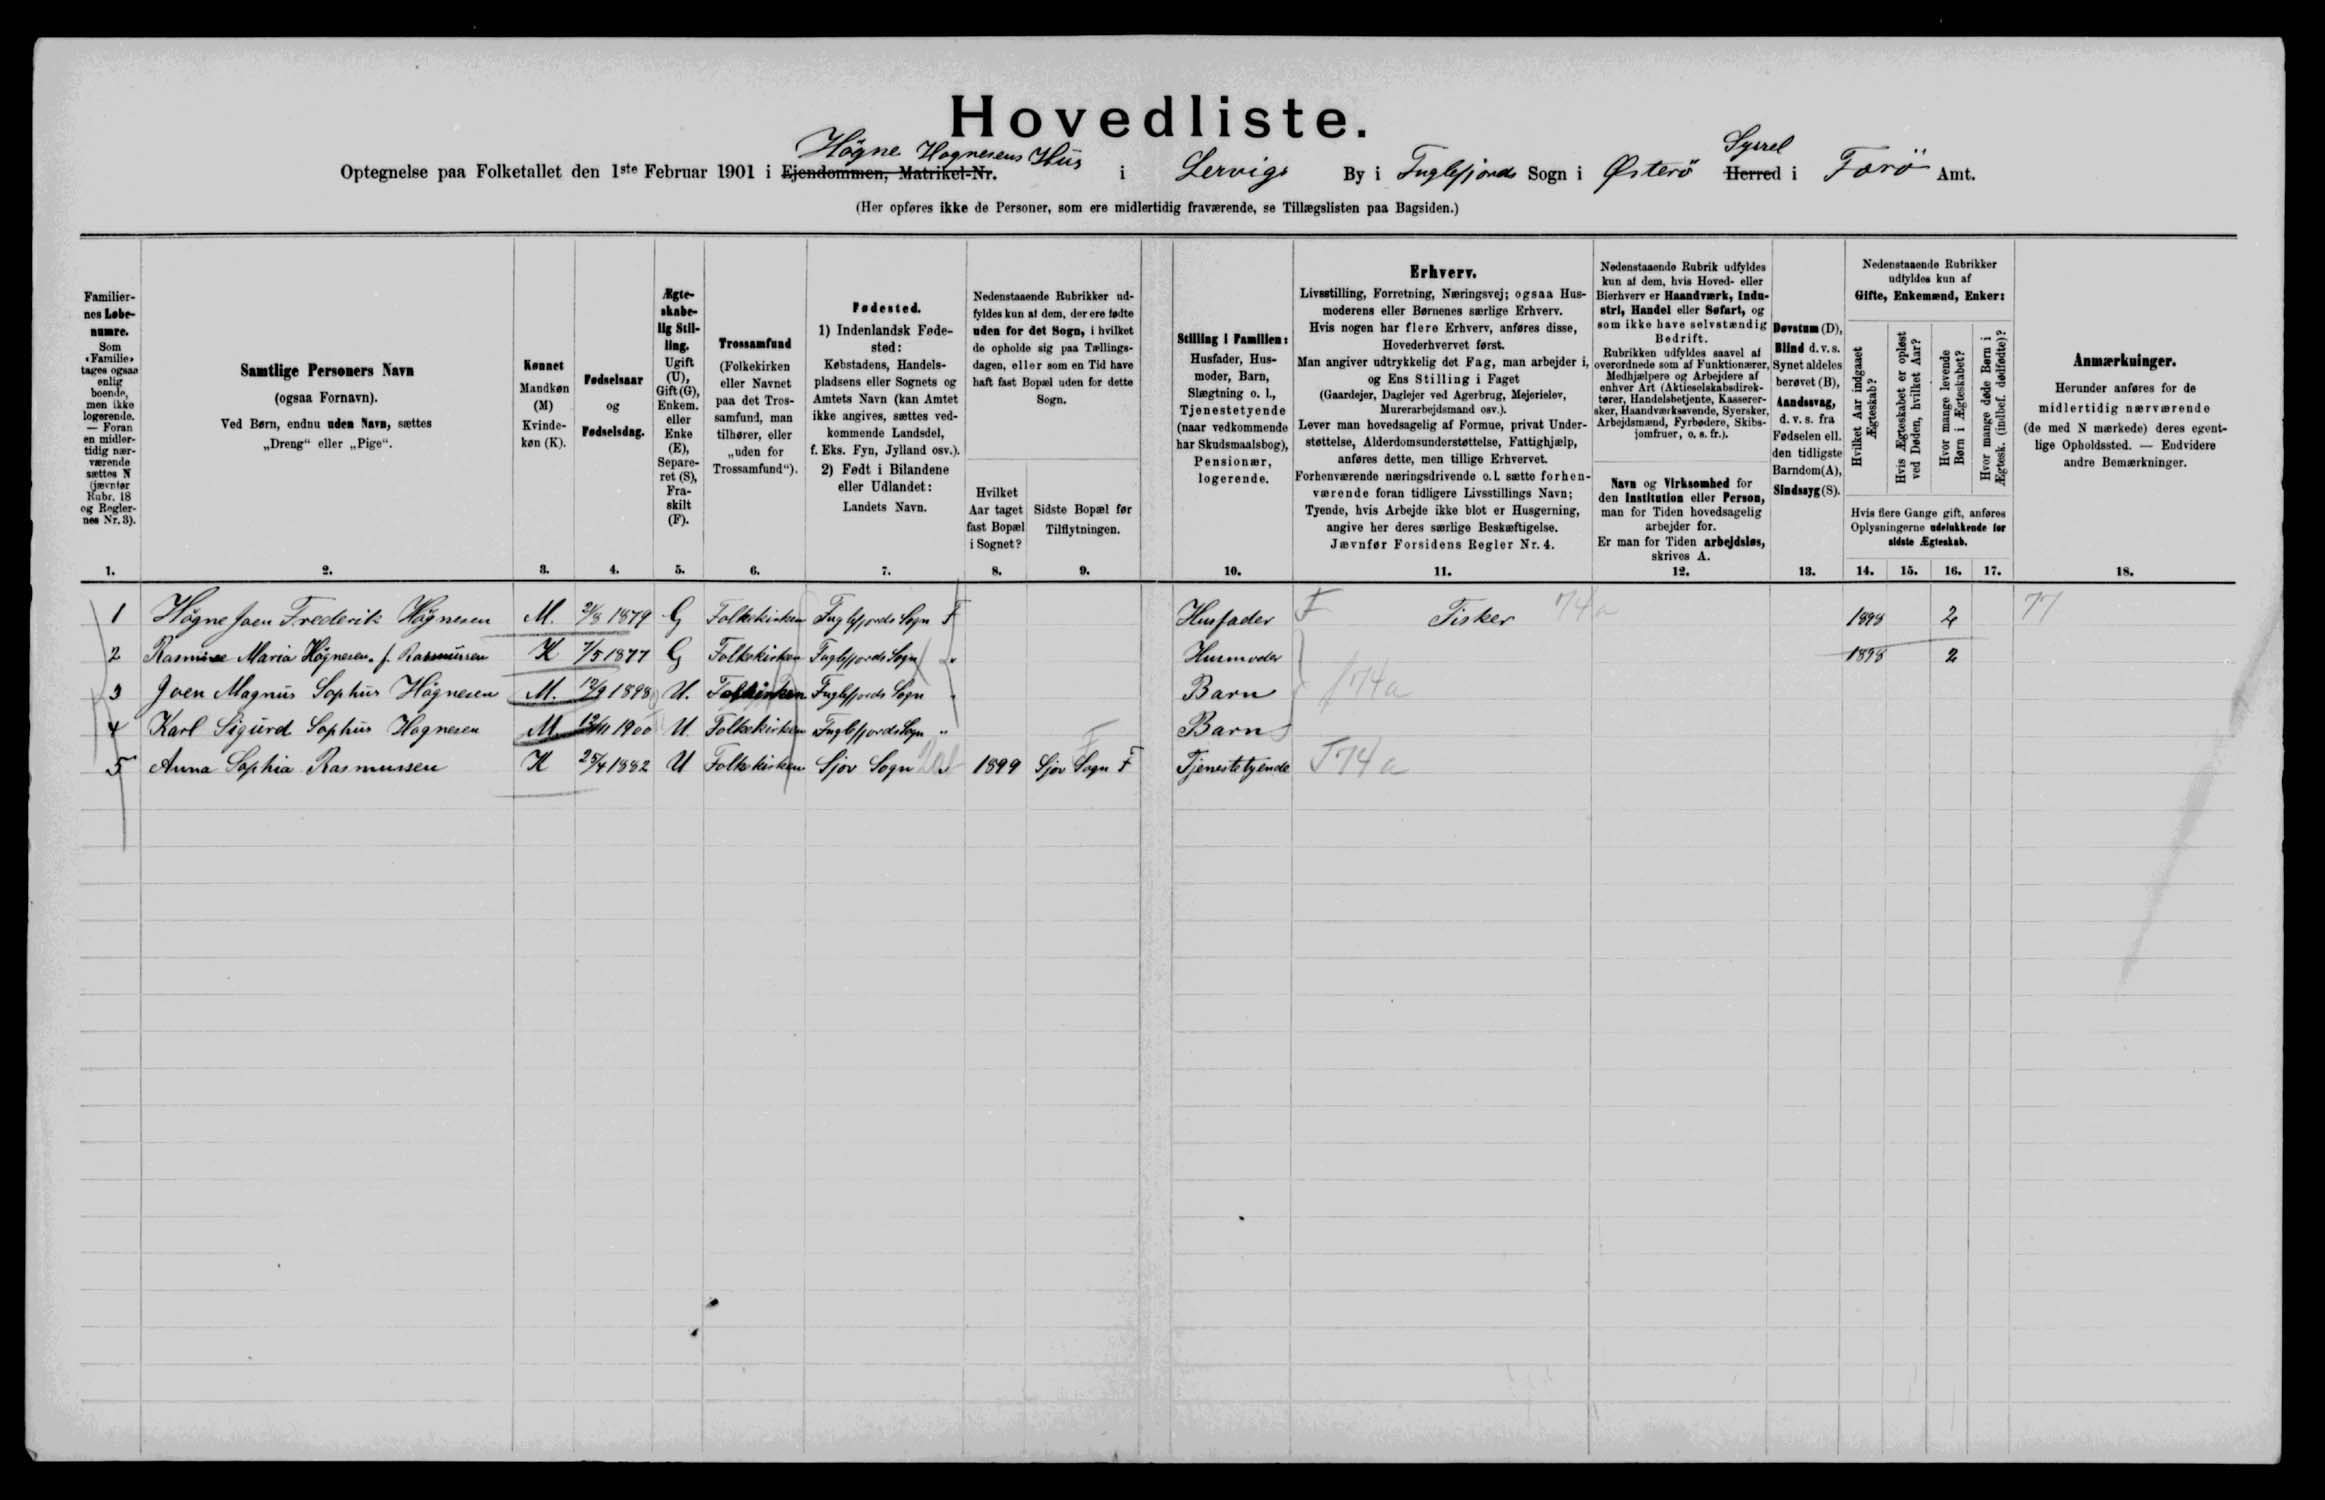 Hovedliste.
Optegnelse paa Folketallet den 1ste Februar 1901 i Ejendommen, Matrikel-Nr. Högne Hognesens Hus i Lervigs By i Fuglefjords Sogn i Østerö Herred Syssel i Færö Amt.
(Her opføres ikke de Personer, som ere midlertidig fraværende, se Tillægslisten paa Bagsiden.)
Familier-
nes Løbe-
numre.
Som
«Familie»
tages ogsaa
enlig
boende,
men ikke
logerende.
— Foran
en midler-
tidig nær-
værende
sættes N
(jævnfør
Rubr. 18
og Regler-
nes Nr. 3).
Samtlige Personers Navn
(ogsaa Fornavn).
Ved Børn, endnu uden Navn, sættes
„Dreng“ eller „Pige“.
Kønnet
Mandkøn
(M)
Kvinde-
køn (K).
Fødselsaar
og
Fødselsdag.
Ægte-
skabe-
lig Stil-
ling.
Ugift
(U),
Gift (G),
Enkem.
eller
Enke
(E),
Separe-
ret (S),
Fra-
skilt
(F).
Trossamfund
(Folkekirken
eller Navnet
paa det Tros-
samfund, man
tilhører, eller
„uden for
Trossamfund“).
Fødested.
1) Indenlandsk Føde-
sted:
Købstadens, Handels-
pladsens eller Sognets og
Amtets Navn (kan Amtet
ikke angives, sættes ved-
kommende Landsdel,
f. Eks. Fyn, Jylland osv.).
2) Født i Bilandene
eller Udlandet:
Landets Navn.
Nedenstaaende Rubrikker ud-
fyldes kun af dem, der ere fødte
uden for det Sogn, i hvilket
de opholde sig paa Tællings-
dagen, eller som en Tid have
haft fast Bopæl uden for dette
Sogn.
Hvilket
Aar taget
fast Bopæl
i Sognet?
Sidste Bopæl før
Tilflytningen.
Stilling i Familien:
Husfader, Hus-
moder, Barn,
Slægtning o. l.,
Tjenestetyende
(naar vedkommende
har Skudsmaalsbog),
Pensionær,
logerende.
Erhverv.
Livsstilling, Forretning, Næringsvej; ogsaa Hus-
moderens eller Børnenes særlige Erhverv.
Hvis nogen har flere Erhverv, anføres disse,
Hovederhvervet først.
Man angiver udtrykkelig det Fag, man arbejder i,
og Ens Stilling i Faget
(Gaardejer, Daglejer ved Agerbrug, Mejerielev,
Murerarbejdsmand osv.).
Lever man hovedsagelig af Formue, privat Under-
støttelse, Alderdomsunderstøttelse, Fattighjælp,
anføres dette, men tillige Erhvervet.
Forhenværende næringsdrivende o. l. sætte forhen-
værende foran tidligere Livsstillings Navn;
Tyende, hvis Arbejde ikke blot er Husgerning,
angive her deres særlige Beskæftigelse.
Jævnfør Forsidens Regler Nr. 4.
Nedenstaaende Rubrik udfyldes
kun af dem, hvis Hoved- eller
Bierhverv er Haandværk, Indu-
stri, Handel eller Søfart, og
som ikke have selvstændig
Bedrift.
Rubrikken udfyldes saavel af
overordnede som af Funktionærer,
Medhjælpere og Arbejdere af
enhver Art (Aktieselskabsdirek-
tører, Handelsbetjente, Kasserer-
sker, Haandværkssvende, Syersker,
Arbejdsmænd, Fyrbødere, Skibs-
jomfruer, o. s. fr.).
Navn og Virksomhed for
den Institution eller Person,
man for Tiden hovedsagelig
arbejder for.
Er man for Tiden arbejdsløs,
skrives A.
Døvstum (D),
Blind d. v. s.
Synet aldeles
berøvet (B),
Aandssvag,
d. v. s. fra
Fødselen ell.
den tidligste
Barndom (A),
Sindssyg (S).
Nedenstaaende Rubrikker
udfyldes kun af
Gifte, Enkemænd, Enker:
Hvilket Aar indgaaet
Ægteskab?
Hvis Ægteskabet er opløst
ved Døden, hvilket Aar?
Hvor mange levende
Børn i Ægteskabet?
Hvor mange døde Børn i
Ægtesk. (indbef. dødfødte)?
Hvis flere Gange gift, anføres
Oplysningerne udelukkende for
sidste Ægteskab.
Anmærkninger.
Herunder anføres for de
midlertidig nærværende
(de med N mærkede) deres egent-
lige Opholdssted. — Endvidere
andre Bemærkninger.
1. 2. 3. 4. 5. 6. 7. 8. 9. 10. 11. 12. 13. 14. 15. 16. 17. 18.
1 Högne Joen Frederik Högnesen M. 21/8 1879 G Folkekirken Fuglefjords Sogn F Husfader F Fisker 74a 1898 2 77
2 Rasmine Maria Högnesen. f. Rasmussen K 7/5 1877 G Folkekirken Fuglefjords Sogn „ Husmoder 1898 2
3 Joen Magnus Sophus Högnesen M. 12/9 1898 U. Folkekirken Fuglefjords Sogn „ Barn 74a
4 Karl Sigurd Sophus Hognesen M 12/11 1900 U Folkekirken Fuglefjords Sogn „ Barn
5 Anna Sophia Rasmussen K 25/4 1882 U Folkekirken Sjov Sogn 1899 Sjov Sogn F Tjenestetyende T 74a